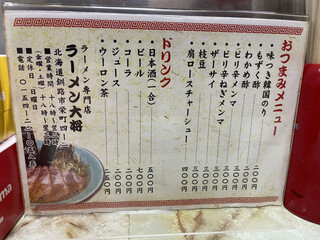 おつまみメニュー
・味つき韓国のり 二〇〇円
・もずく酢 二〇〇円
・めかぶ酢 二〇〇円
・ピリ辛メンマ 三〇〇円
・ピリ辛ねぎメンマ 三〇〇円
・ザーサイ 三〇〇円
・枝豆 三〇〇円
・肩ロースチャーシュー 四〇〇円
ドリンク
・日本酒（一合） 五〇〇円
・ビール 七〇〇円
・コーラ 二五〇円
・ジュース
・ウーロン茶 二五〇円
ラーメン専門店
ラーメン大将
北海道釧路市栄町四ー二
■営業時間
(金曜・土曜
■定休日(日曜日
■電話 〇一五四ー